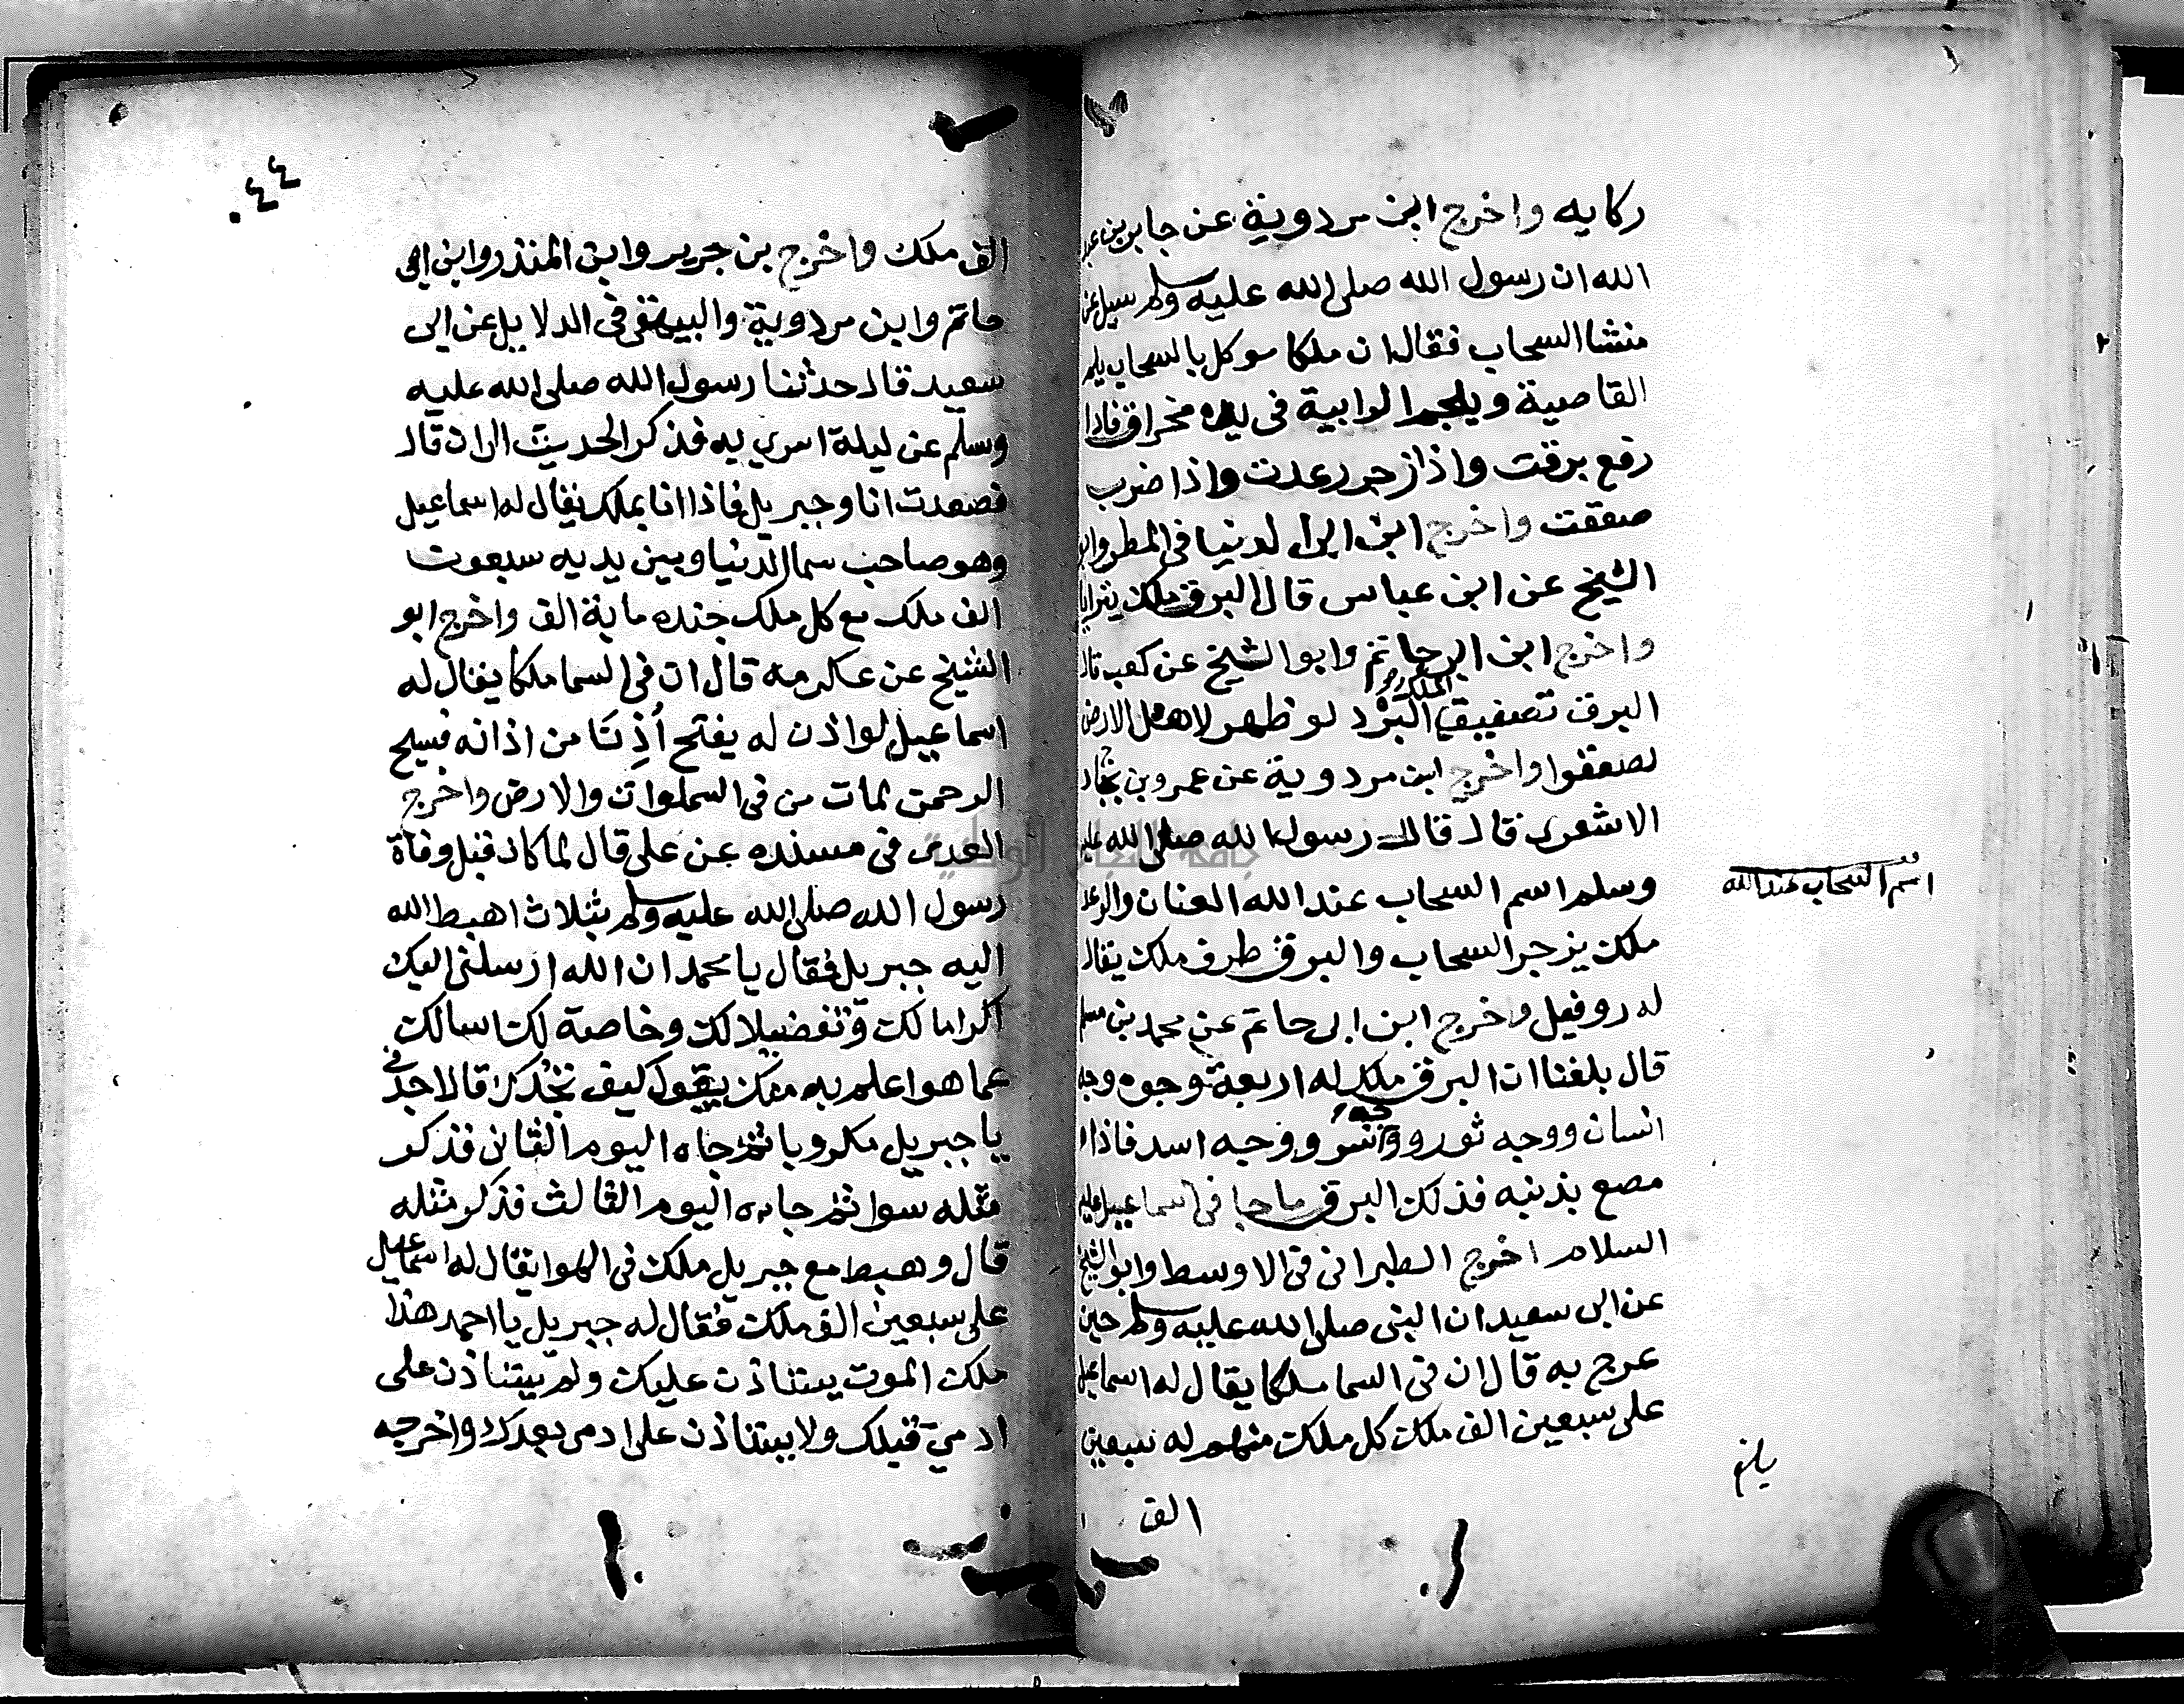 ركابه واخرج ابن مردوية عن جابر بن عبد
الله ان رسول الله صلى الله عليه وسلم سيل عن
منشا السحاب فقال ان ملكا موكل بالسحاب يلم
القاصية ويلحم الرابية في يده مخراق فاذا
رفع برقت واذا زجر رعدت واذا ضرب
صعقت واخرج ابن ابي الدنيا في المطر وابو
الشيخ عن ابن عباس قال البرق ملك يترايا
واخرج ابن ابي حاتم وابو الشيخ عن كعب قال
البرق تصفيق الملك البرد لو ظهر لاهل الارض
لصعقوا واخرج ابن مردوية عن عمرو بن بجاد
الاشعري قال قال رسول الله صلى الله عليه
وسلم اسم السحاب عند الله العنان والرعد
اسم السحاب عند الله
ملك يزجر السحاب والبرق طرف ملك يقال
له روفيل واخرج ابن ابي حاتم عن محمد بن مسلم
قال بلغنا ان البرق ملك له اربعة وجوه وجه
انسان ووجه ثور ووجه نسر ووجه اسد فاذا
مصع بذنبه فذلك البرق ما جا في اسماعيل عليه
السلام اخرج الطبراني في الاوسط وابو الشيخ
عن ابي سعيد ان النبي صلى الله عليه وسلم حين
عرج به قال ان في السما ملكا يقال له اسماعيل
على سبعين الف ملك كل ملك منهم له سبعين
الف
٤٤
الف ملك واخرج بن جرير وابن المنذر وابن ابي
حاتم وابن مردوية والبيهقي في الدلايل عن ابي
سعيد قال حدثنا رسول الله صلى الله عليه
وسلم عن ليلة اسري به فذكر الحديث الى ان قال
فصعدت انا وجبريل فاذا انا بملك يقال له اسماعيل
وهو صاحب سما الدنيا وبين يديه سبعون
الف ملك مع كل ملك جنده ماية الف واخرج ابو
الشيخ عن عكرمه قال ان في السما ملكا يقال له
اسماعيل لو اذن له يفتح أذنا من اذانه فسبح
الرحمن لمات من في السموات والارض واخرج
العدني في مسنده عن علي قال لما كان قبل وفاة
رسول الله صلى الله عليه وسلم بثلاث اهبط الله
اليه جبريل فقال يا محمد ان الله ارسلني اليك
اكراما لك وتفضيلا لك وخاصة لك اسالك
عما هو اعلم به منك يقول كيف تجدك قال اجدني
يا جبريل مكروبا ثم جاه اليوم الثاني فذكر
مثله سوا ثم جاءه اليوم الثالث فذكر مثله
قال وهبط مع جبريل ملك في الهوا يقال له اسماعيل
على سبعين الف ملك فقال له جبريل يا احمد هذا
ملك الموت يستاذن عليك ولم يستاذن على
ادمي قبلك ولا يستاذن على ادمي بعدك واخرجه